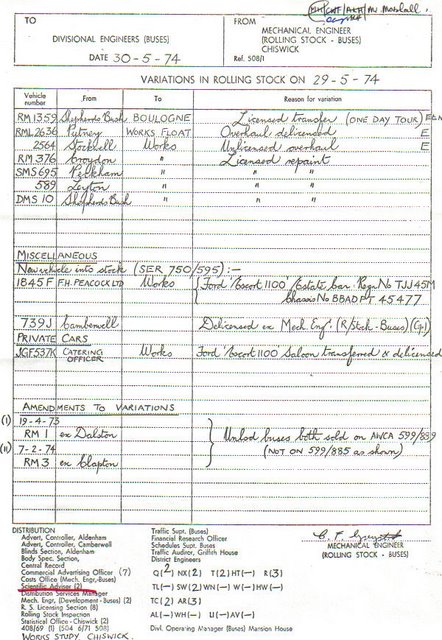 EH/CHT/AKH/Mr Marshall.
TO
FROM
DIVISIONAL ENGINEERS (BUSES)
MECHANICAL ENGINEER
(ROLLING STOCK - BUSES)
CHISWICK
DATE 30-5-74
Ref. 508/1
VARIATIONS IN ROLLING STOCK ON 29-5-74
Vehicle number From To Reason for variation
RM 1359 Shepherds Bush BOULOGNE Licensed transfer (ONE DAY TOUR)
RML 2636 Putney WORKS FLOAT Overhaul delicensed E
2564 Stockwell Works Unlicensed overhaul E
RM 376 Croydon " Licensed repaint
SMS 695 Peckham " " "
589 Leyton " " "
DMS 10 Shepherds Bush " " "
MISCELLANEOUS
New vehicle into stock (SER 750/595) :-
1845 F F.H. PEACOCK LTD Works Ford 'Escort 1100' Estate Car. Regn No TJJ 45M
Chassis No BBADPT 45477
739J Camberwell Delicensed ex Mech. Engr. (R/Stck-Buses) (Cp1)
PRIVATE CARS
JGF 537K CATERING OFFICER Works Ford 'Escort 1100' Saloon transferred & delicensed
AMENDMENTS TO VARIATIONS
(I) 19-4-73
RM 1 ex Dalston Unlcd buses both sold on AWCA 599/839
(II) 7-2-74 (NOT ON 599/885 as shown)
RM 3 ex Clapton
DISTRIBUTION
Advert, Controller, Aldenham
Advert, Controller, Camberwell
Blinds Section, Aldenham
Body Spec. Section,
Central Record
Commercial Advertising Officer (7)
Costs Office (Mech. Engr.-Buses)
Scientific Adviser (2)
Distribution Services Manager
Mech. Engr. (Development-Buses) (2)
R. S. Licensing Section (8)
Rolling Stock Inspection
Statistical Office - Chiswick (2)
408/69 (1) 504 6/71 508/
WORKS STUDY. CHISWICK.
Traffic Supt. (Buses)
Financial Research Officer
Schedules Supt. Buses
Traffic Auditor, Griffith House
District Engineers
Q(2) NX(2) T(2) HT(-) R(3)
TL(-) SW(2) WN(-) W(-) HW(-)
TC(2) AR(3)
AL(-) WH(-) U(-) AV(-)
Divl. Operating Manager (Buses) Mansion House
MECHANICAL ENGINEER
(ROLLING STOCK - BUSES)